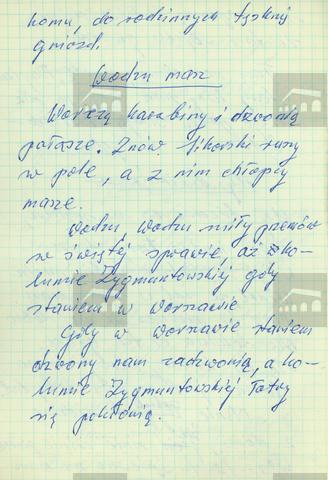 komu, do rodzinnych tęskniej
gniozd.
Wodzu nasz
Warczą karabiny i dzwonią
pałasze. Znów Sikorski rusza
w pole, a z nim chłopcy
nasze.
Wodzu, Wodzu miły przewódź
w świętej sprawie, aż ko-
lumnie Zygmuntowskiej gdy
staniem w Warszawie
Gdy w Warszawie staniem
dzwony nam zadzwonią, a ko-
lumnie Zygmuntowskiej Tatry
się pokłonią.